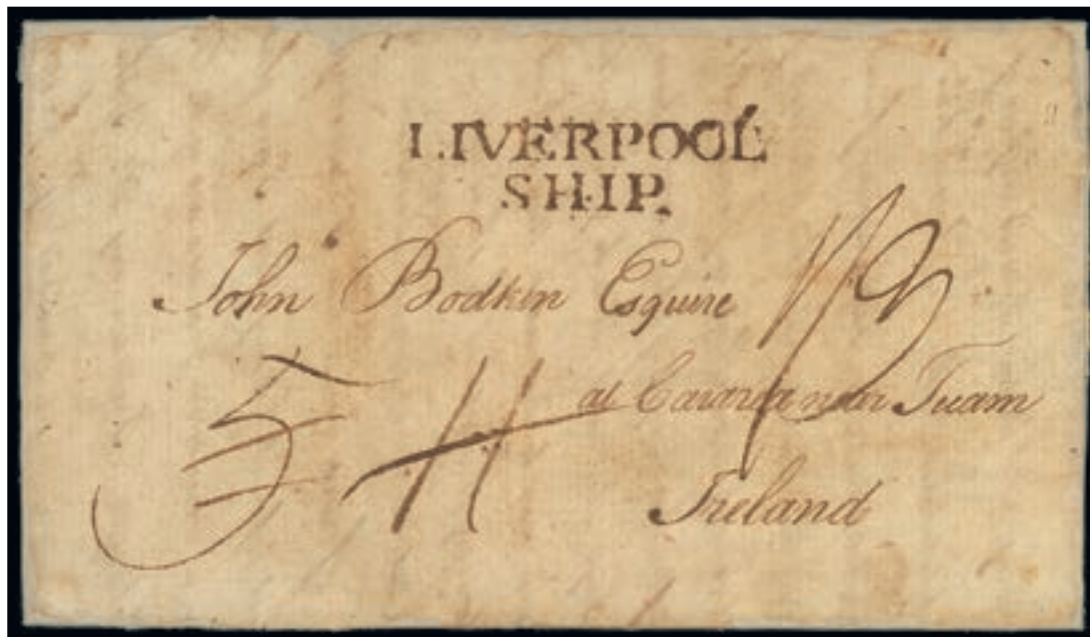 LIVERPOOL
SHIP.
John Bodkin Esquire 1/9
at near Tuam
5 11
Ireland